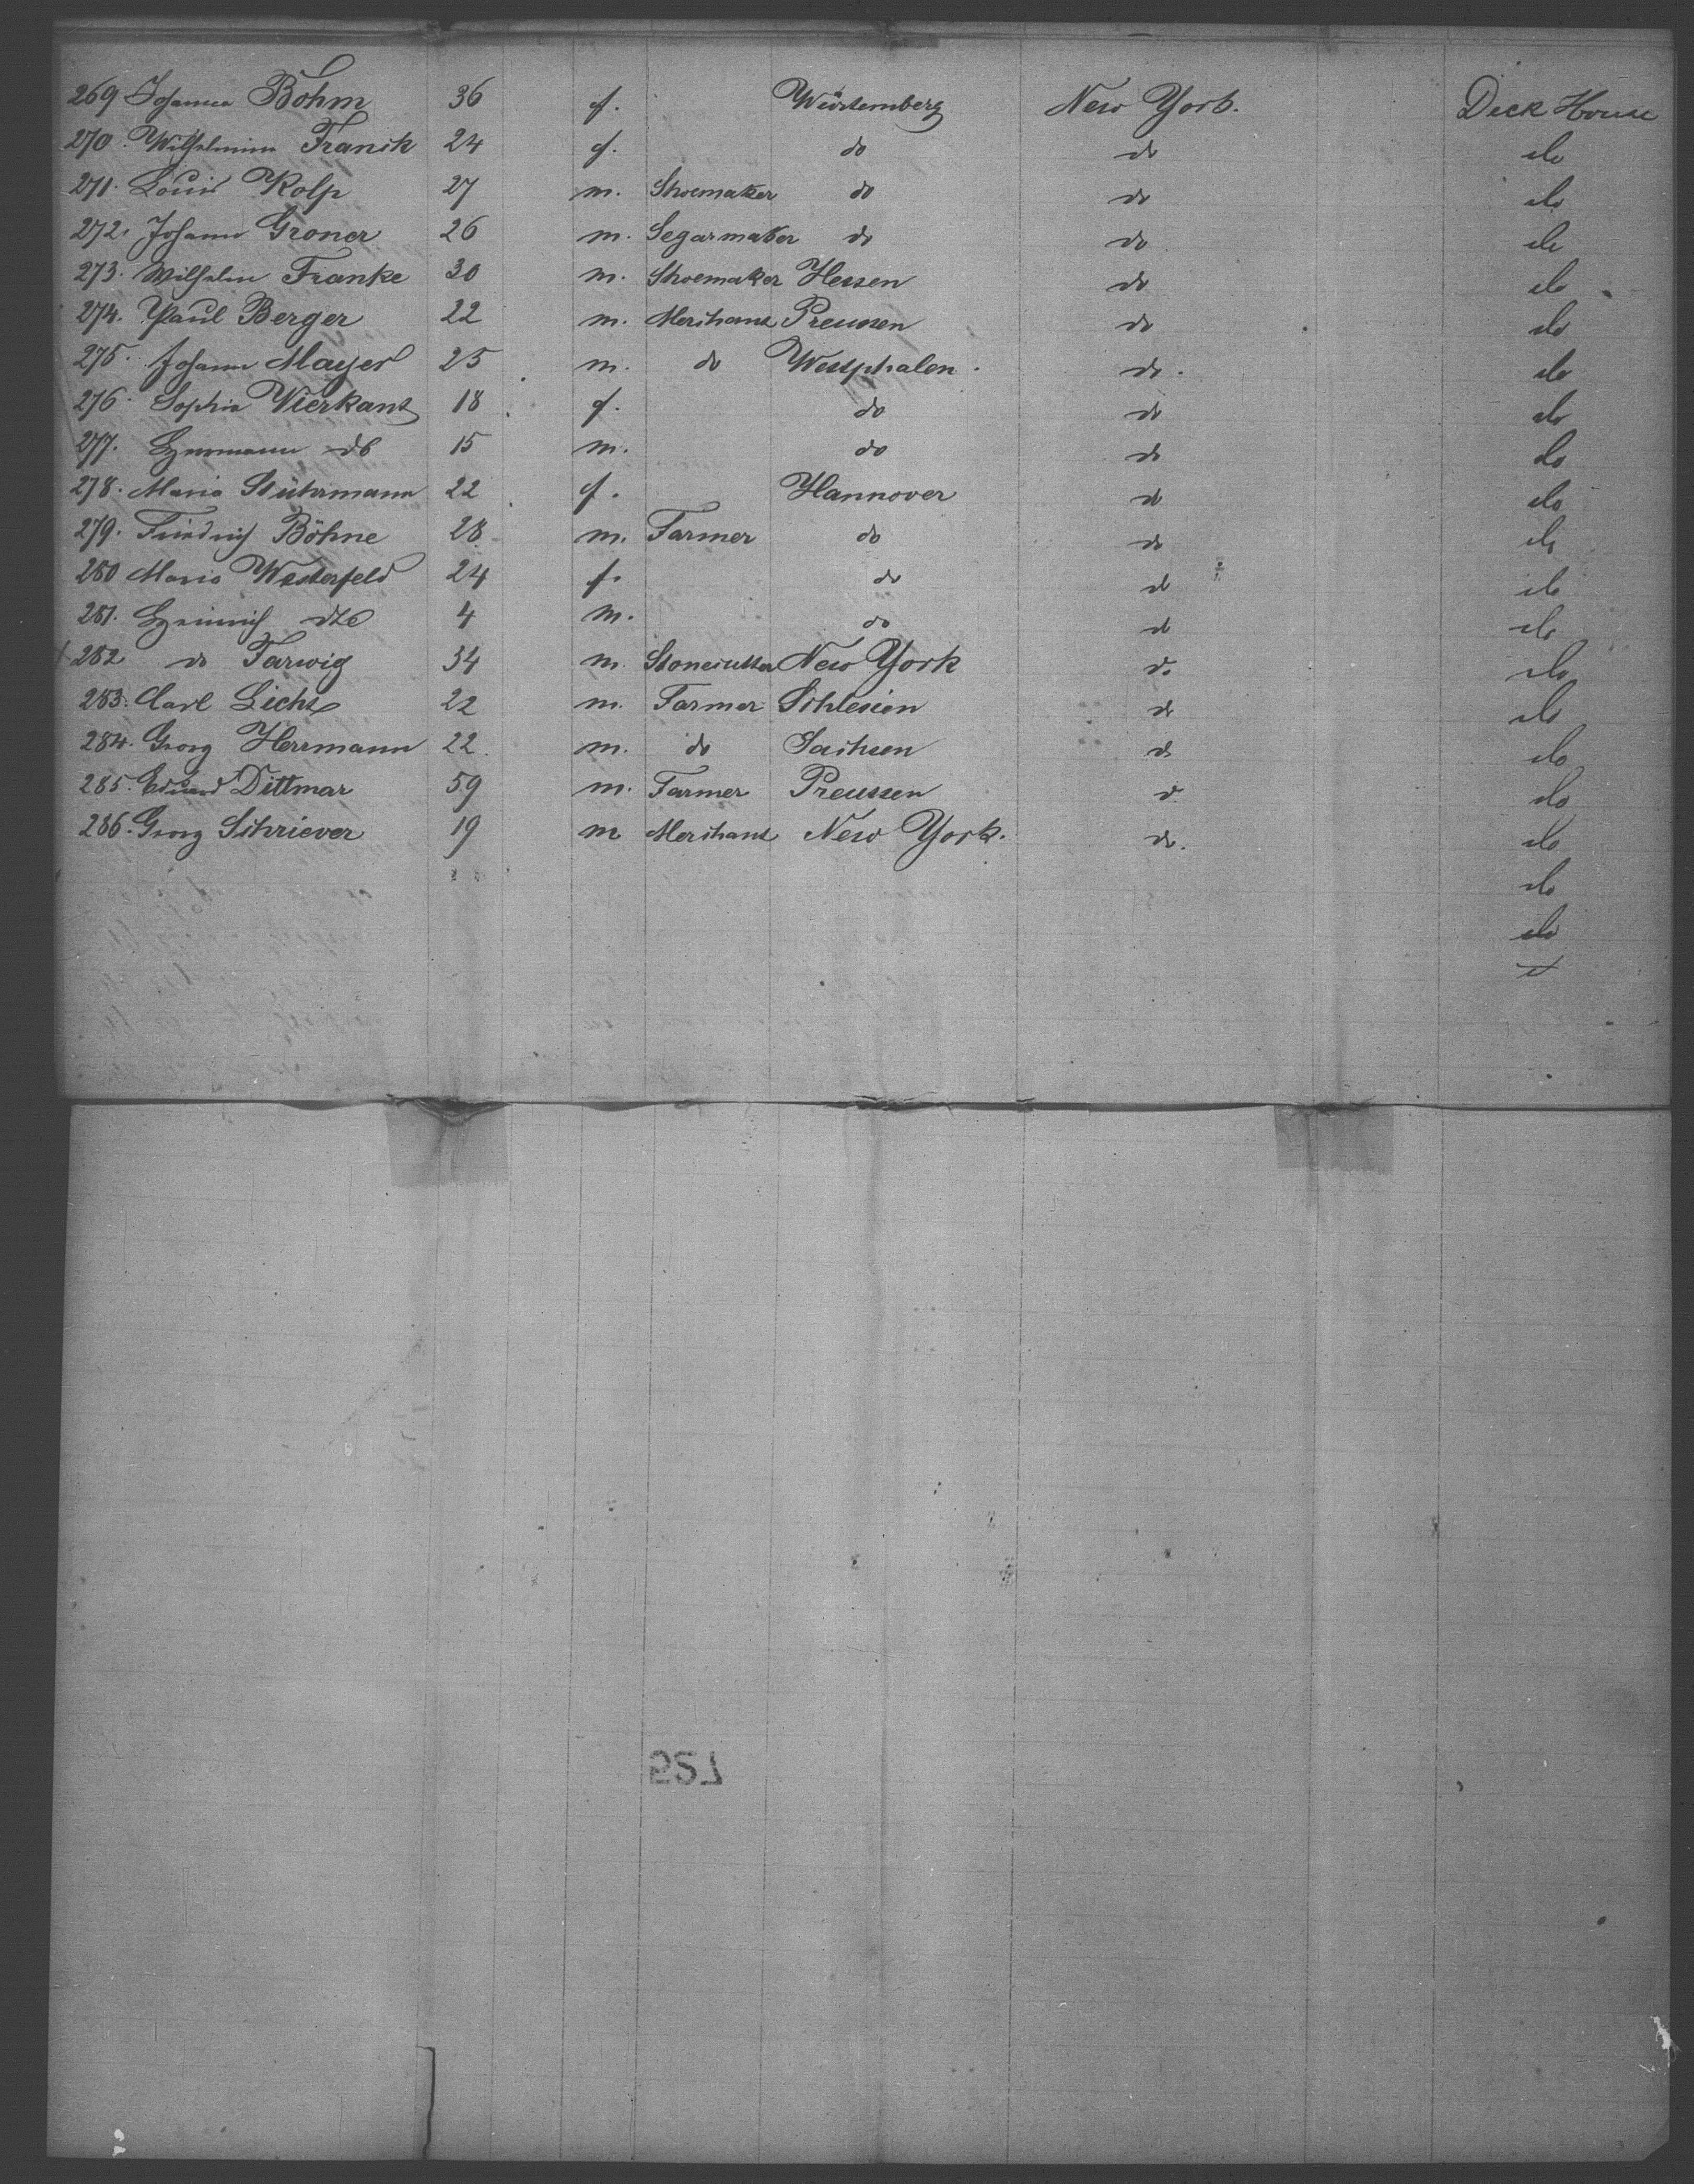 269 Johanna Böhm 36 f. Würtemberg New York. Deck House
270. Wilhelmine Franck 24 f. do do do
271. Louis Kolp 27 m. Shoemaker do do do
272. Johann Groner 26 m. Segarmaker do do do
273. Wilhelm Franke 30 m. Shoemaker Hessen do do
274. Paul Berger 22 m. Merchant Preussen do do
275. Johann Mayer 25 m. do Westphalen. do. do
276. Sophia Vierkant 18 f. do do do
277. Hermann do 15 m. do do do
278. Maria Stührmann 22 f. Hannover do do
279. Friedrich Böhne 28 m. Farmer do do do
280 Maria Westerfeld 24 f. do do do
281. Heinrich dto 4 m. do do do
282 do Tarwig 34 m. Stonecutter New York do do
283. Carl Licht 22 m. Farmer Schlesien do do
284. Georg Herrmann 22. m. do Sachsen do do
285. Eduard Dittmar 59 m. Farmer Preussen do do
286. Georg Schriever 19 m Merchant New York. do. do
do
do
257